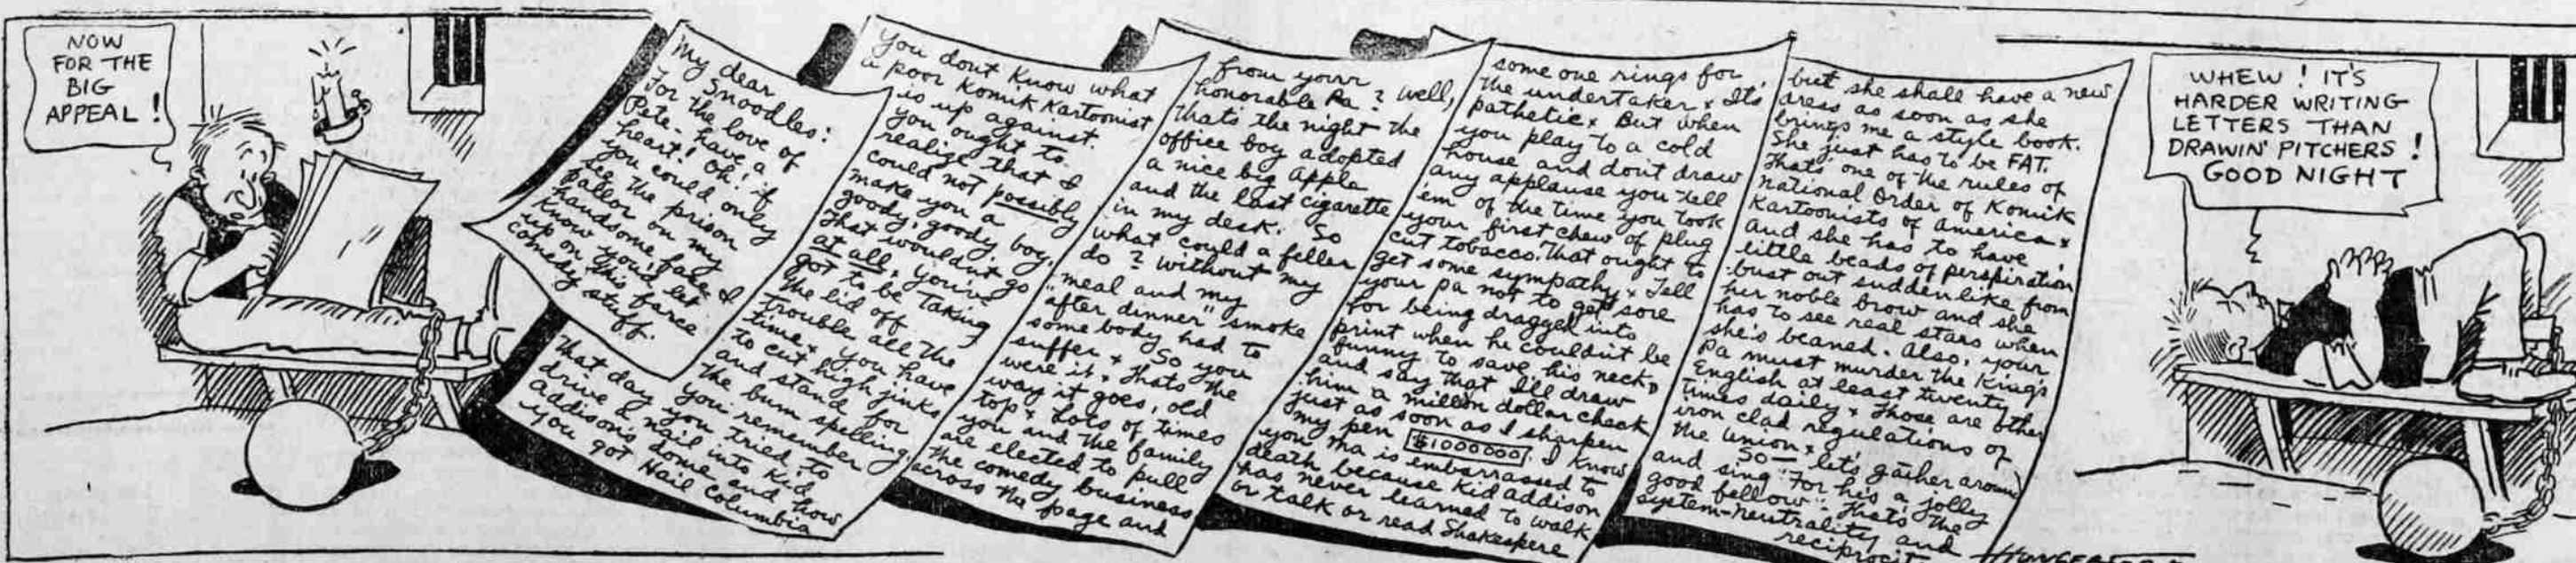 NOW
FOR THE
BIG
APPEAL!
My dear
Snoodles:
For the love of
Pete - have a
heart! Oh! if
you could only
see the prison
pallor on my
handsome face I
know you'd let
up on this farce
comedy stuff.
You dont know what
a poor Komik Kartoonist
is up against.
you ought to
realize that I
could not possibly
make you a
goody, goody boy.
That wouldn't go
at all, you've
got to be taking
the lid off
trouble all the
time x you have
to cut high jinks
and stand for
the bum spelling.
you remember
that day you tried to
drive a nail into Kid
Addison's dome and how
you got Hail Columbia
from your
honorable Pa? well,
thats the night the
office boy adopted
a nice big apple
and the last cigarette
in my desk. So
what could a feller
do? without my
meal and my
"after dinner" smoke
some body had to
suffer x So you
were it x thats the
way it goes, old
top x Lots of times
you and the family
are elected to pull
the comedy business
across the page and
some one rings for
the undertaker x It's
pathetic x But when
you play to a cold
house and dont draw
any applause you tell
'em of the time you took
your first chew of plug
cut tobacco. That ought to
get some sympathy x Tell
your pa not to get sore
for being dragged into
print when he couldn't be
funny to save his neck,
and say that I'll draw
him a million dollar check
just as soon as I sharpen
my pen $1000000. I know
your ma is embarrassed to
death because Kid addison
has never learned to walk
or talk or read Shakespere
but she shall have a new
dress as soon as she
brings me a style book.
She just has to be FAT.
That's one of the rules of
national Order of Komik
Kartoonists of america x
and she has to have
little beads of perspiration
bust out sudden like from
her noble brow and she
has to see real stars when
she's beaned. Also, your
Pa must murder the King's
English at least twenty
times daily x Those are other
iron clad regulations of
the union x
So — let's gather around
and sing "For he's a jolley
good fellow". That's the
system - neutrality and
WHEW! IT'S
HARDER WRITING
LETTERS THAN
DRAWIN' PITCHERS!
GOOD NIGHT